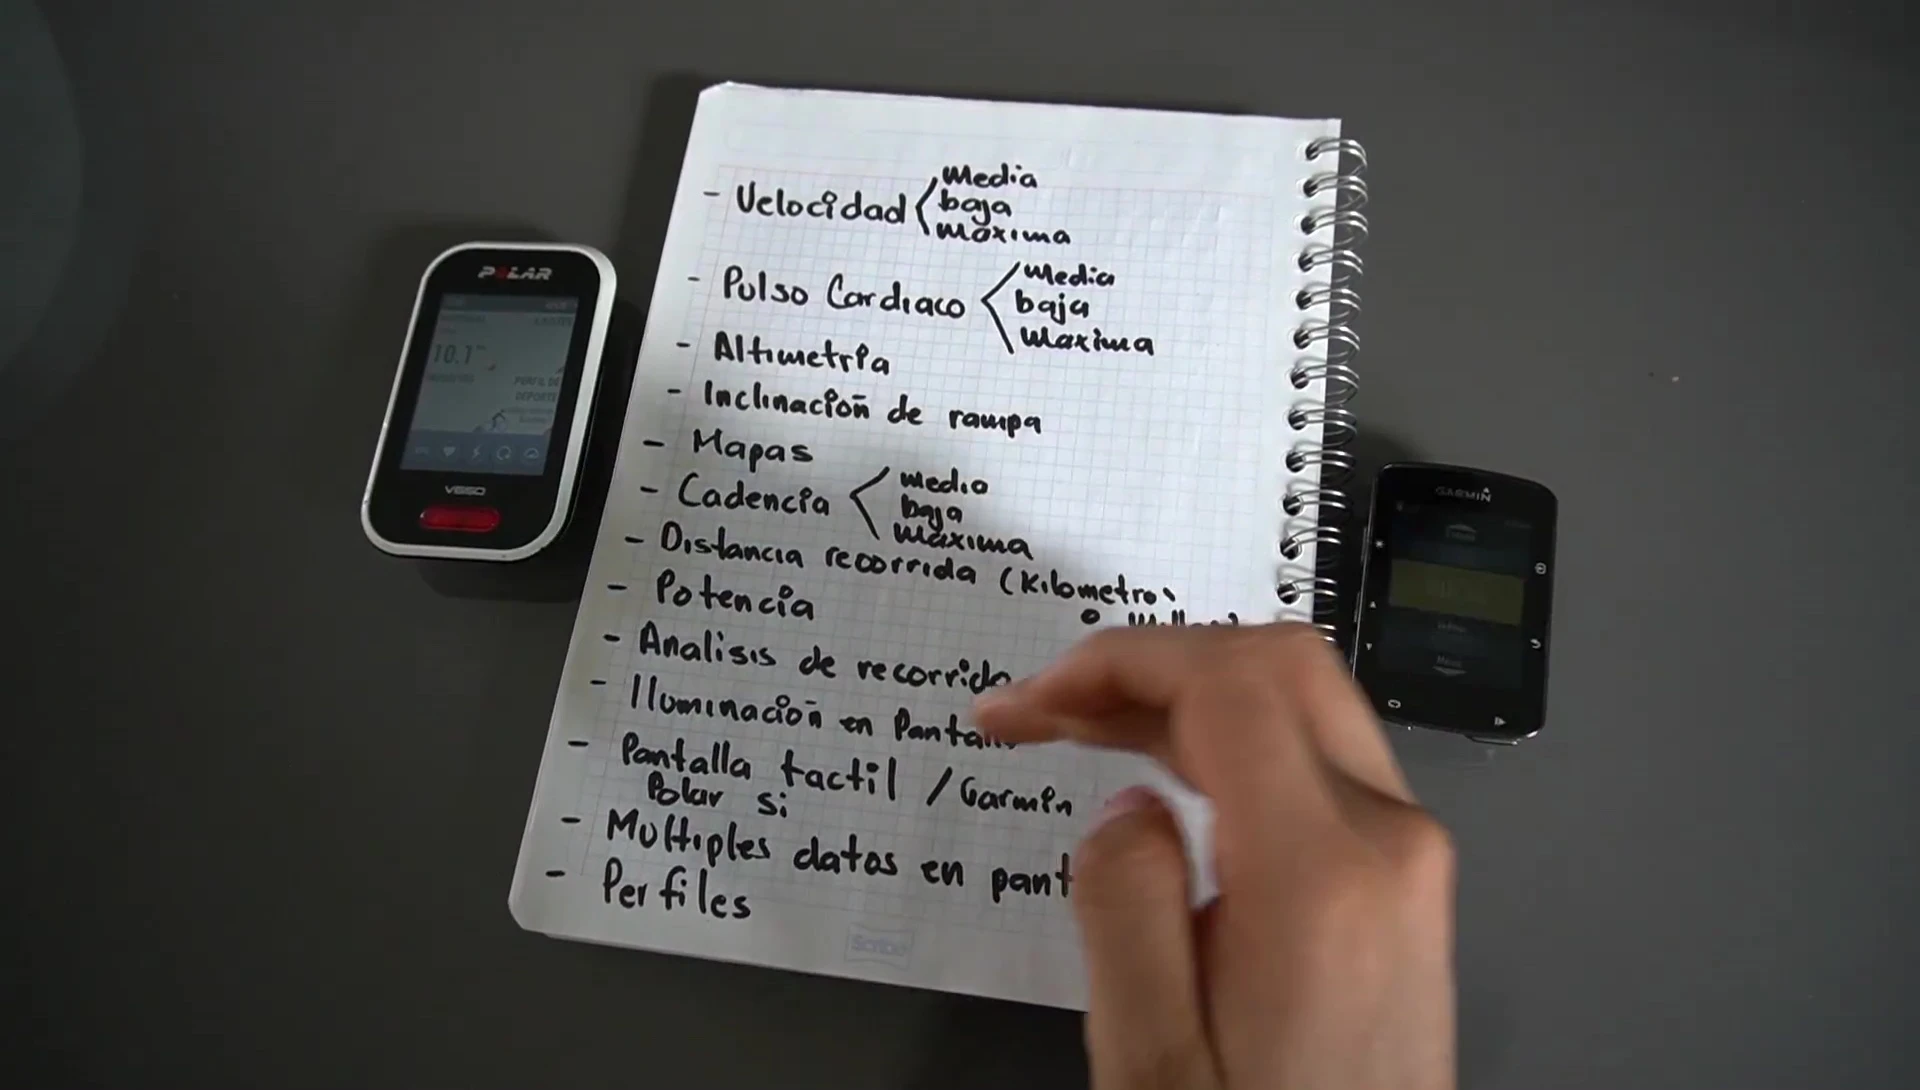 - Velocidad
Media
baja
maxima
- Pulso Cardiaco
Media
baja
Maxima
- Altimetría
- Inclinación de rampa
- Mapas
- Cadencia
medio
baja
maxima
- Distancia recorrida (Kilometros
o
- Potencia
- Analisis de recorrido
- Iluminación en Pantalla
- Pantalla tactil / Garmin
Polar si
- Multiples datos en pant
- Perfiles
Scribe
POLAR
10.1
PERFIL DE
DEPORTE
V650
GARMIN
Menú